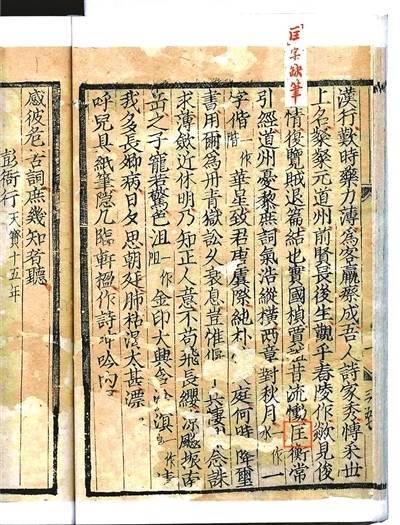 「匡」字缺筆
漢行歎時藥力薄為客羸瘵成吾人詩家秀博采世
上名粲粲元道州前賢畏後生觀乎舂陵作欻見俊
情復覽賊退篇結也實國楨賈誼昔流慟匡衡常
引經道州憂黎庶詞氣浩縱橫兩章對秋月一作水一
字偕一作階華星致君唐虞際純朴庭何時降璽
書用爾為丹青獄訟久衰息豈惟偃念誅
求薄斂近休明乃知正人意不苟飛長纓涼飈振南
岳之子寵若驚色沮一作阻金印大興含滇一作
我多長卿病日夕思朝廷肺枯渴太甚漂
呼兒具紙筆隱几臨軒楹作詩呻吟內
感彼危苦詞庶幾知者聽
彭衙行天寶十五年